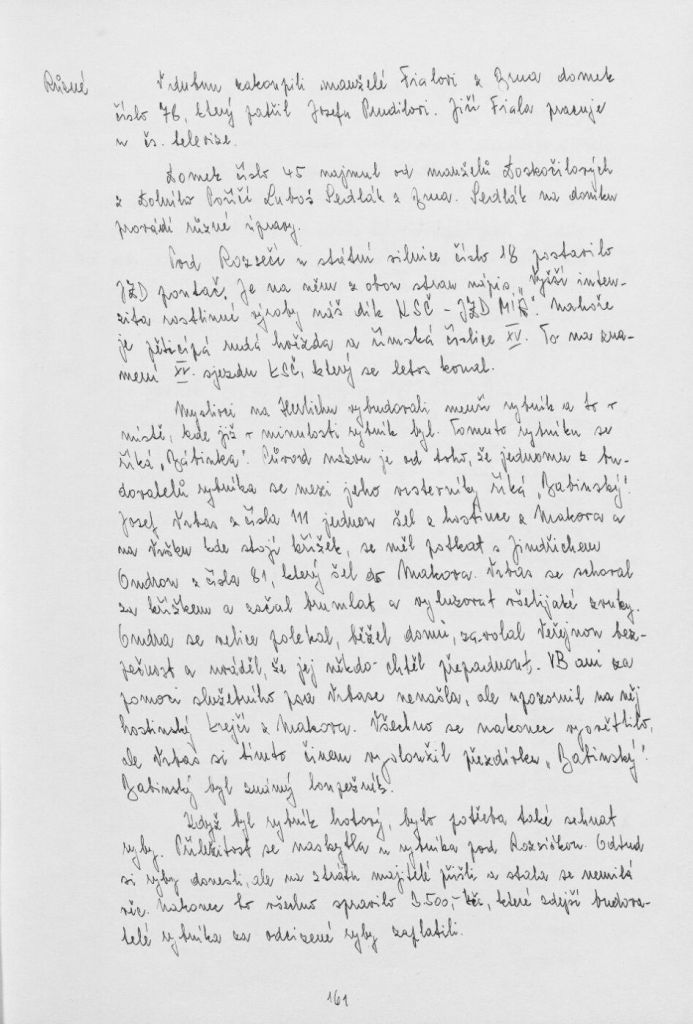 Různé V dubnu zakoupili manželé Fialovi z Brna domek
číslo 76, který patřil Josefu Prudilovi. Jiří Fiala pracuje
v čs. televize.
Domek číslo 45 najmul od manželů Doskočilových
z Dolního Poříčí Luboš Sedlák z Brna. Sedlák na domku
provádí různé úpravy.
Pod Rozsečí u státní silnice číslo 18 postavilo
JZD poutač. Je na něm z obou stran nápis „Vyšší inten-
zita rostlinné výroby náš dík KSČ - JZD MÍR". Nahoře
je pěticípá rudá hvězda a římská číslice XV. To na zna-
mení XV. sjezdu KSČ, který se letos konal.
Myslivci na Herlichu vybudovali menší rybník a to v
místě, kde již v minulosti rybník byl. Tomuto rybníku se
říká „Bábinka". Původ názvu je od toho, že jednomu z bu-
dovatelů rybníka se mezi jeho vrstevníky říká „Babinský".
Josef Vrbas z čísla 111 jednou šel z hostince z Makova a
na Vršku kde stojí křížek, se měl potkat s Jindřichem
Ondrou z čísla 81, který šel do Makova. Vrbas se schoval
za křížkem a začal brumlat a vyluzovat všelijaké zvuky.
Ondra se velice polekal, běžel domů, zavolal Veřejnou bez-
pečnost a uváděl, že jej někdo chtěl přepadnout. VB ani za
pomoci služebního psa Vrbase nenašla, ale upozornil na něj
hostinský Krejčí z Makova. Všechno se nakonec vysvětlilo,
ale Vrbas si tímto činem vysloužil přezdívku „Babinský".
Babinský byl známý loupežník.
Když byl rybník hotový, bylo potřeba také sehnat
ryby. Příležitost se naskytla u rybníka pod Rozsíčkou. Odtud
si ryby donesli, ale na ztrátu majitelé přišli a stala se nemilá
věc. Nakonec to všechno spravilo 3.500,- Kčs, které zdejší budova-
telé rybníka za odcizené ryby zaplatili.
161